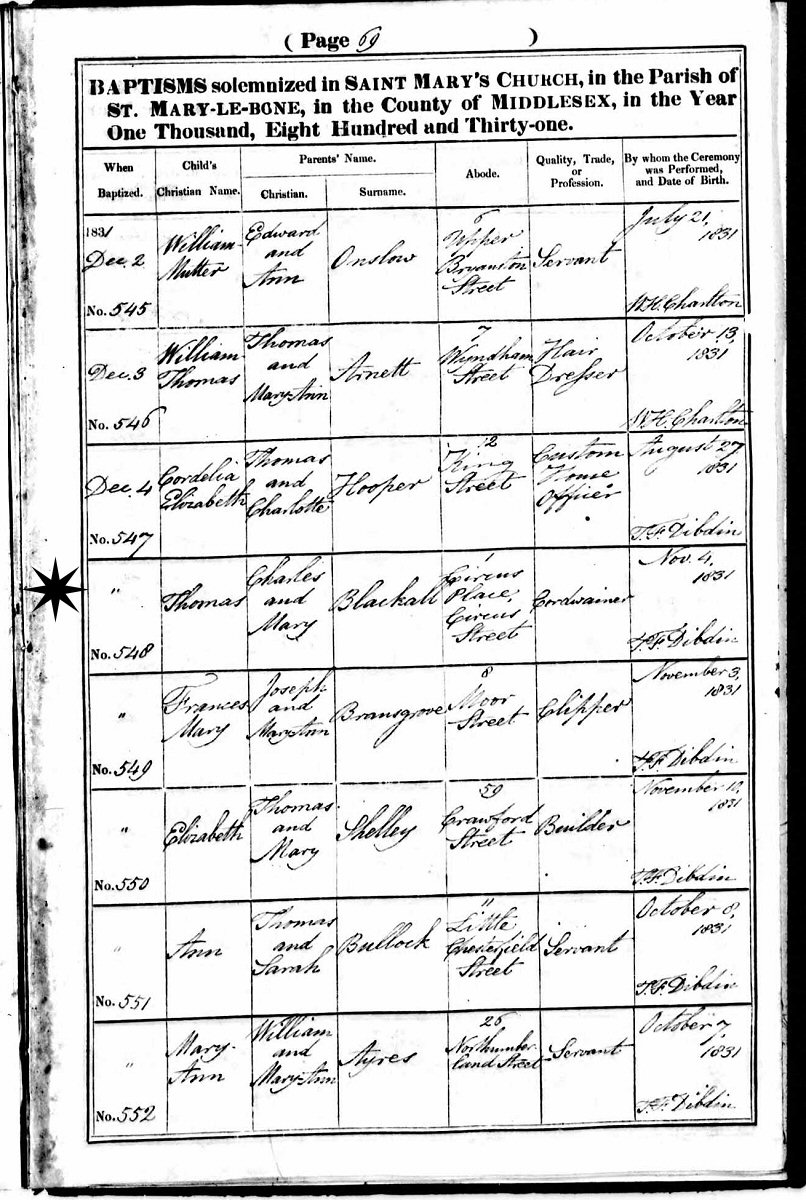 ( Page 69 )
BAPTISMS solemnized in SAINT MARY'S CHURCH, in the Parish of
ST. MARY-LE-BONE, in the County of MIDDLESEX, in the Year
One Thousand, Eight Hundred and Thirty-one.
When Baptized.
Child's Christian Name.
Parents' Name.
Christian.
Surname.
Abode.
Quality, Trade, or Profession.
By whom the Ceremony was Performed, and Date of Birth.
1831
Dec. 2
No. 545
William
Mutter
Edward
and
Ann
Onslow
6
Upper
Bryanston
Street
Servant
July 21,
1831
W. H. Charlton
Dec. 3
No. 546
William
Thomas
Thomas
and
Mary-Ann
Arnett
7
Wyndham
Street
Hair
Dresser
October 13,
1831
W. H. Charlton
Dec. 4
No. 547
Cordelia
Elizabeth
Thomas
and
Charlotte
Hooper
12
King
Street
Custom
House
Officer
August 27
1831
T. F. Dibdin
"
No. 548
Thomas
Charles
and
Mary
Blackall
1
Circus
Place,
Circus
Street
Cordwainer
Nov. 4,
1831
T. F. Dibdin
"
No. 549
Frances
Mary
Joseph
and
Mary Ann
Bransgrove
8
Moor
Street
Clipper
November 3,
1831
T. F. Dibdin
"
No. 550
Elizabeth
Thomas
and
Mary
Shelley
59
Crawford
Street
Builder
November
1831
T. F. Dibdin
"
No. 551
Ann
Thomas
and
Sarah
Bullock
11
Little
Chesterfield
Street
Servant
October 8,
1831
T. F. Dibdin
"
No. 552
Mary-
Ann
William
and
Mary-Ann
Ayres
26
Northumber-
land Street
Servant
October 7,
1831
T. F. Dibdin